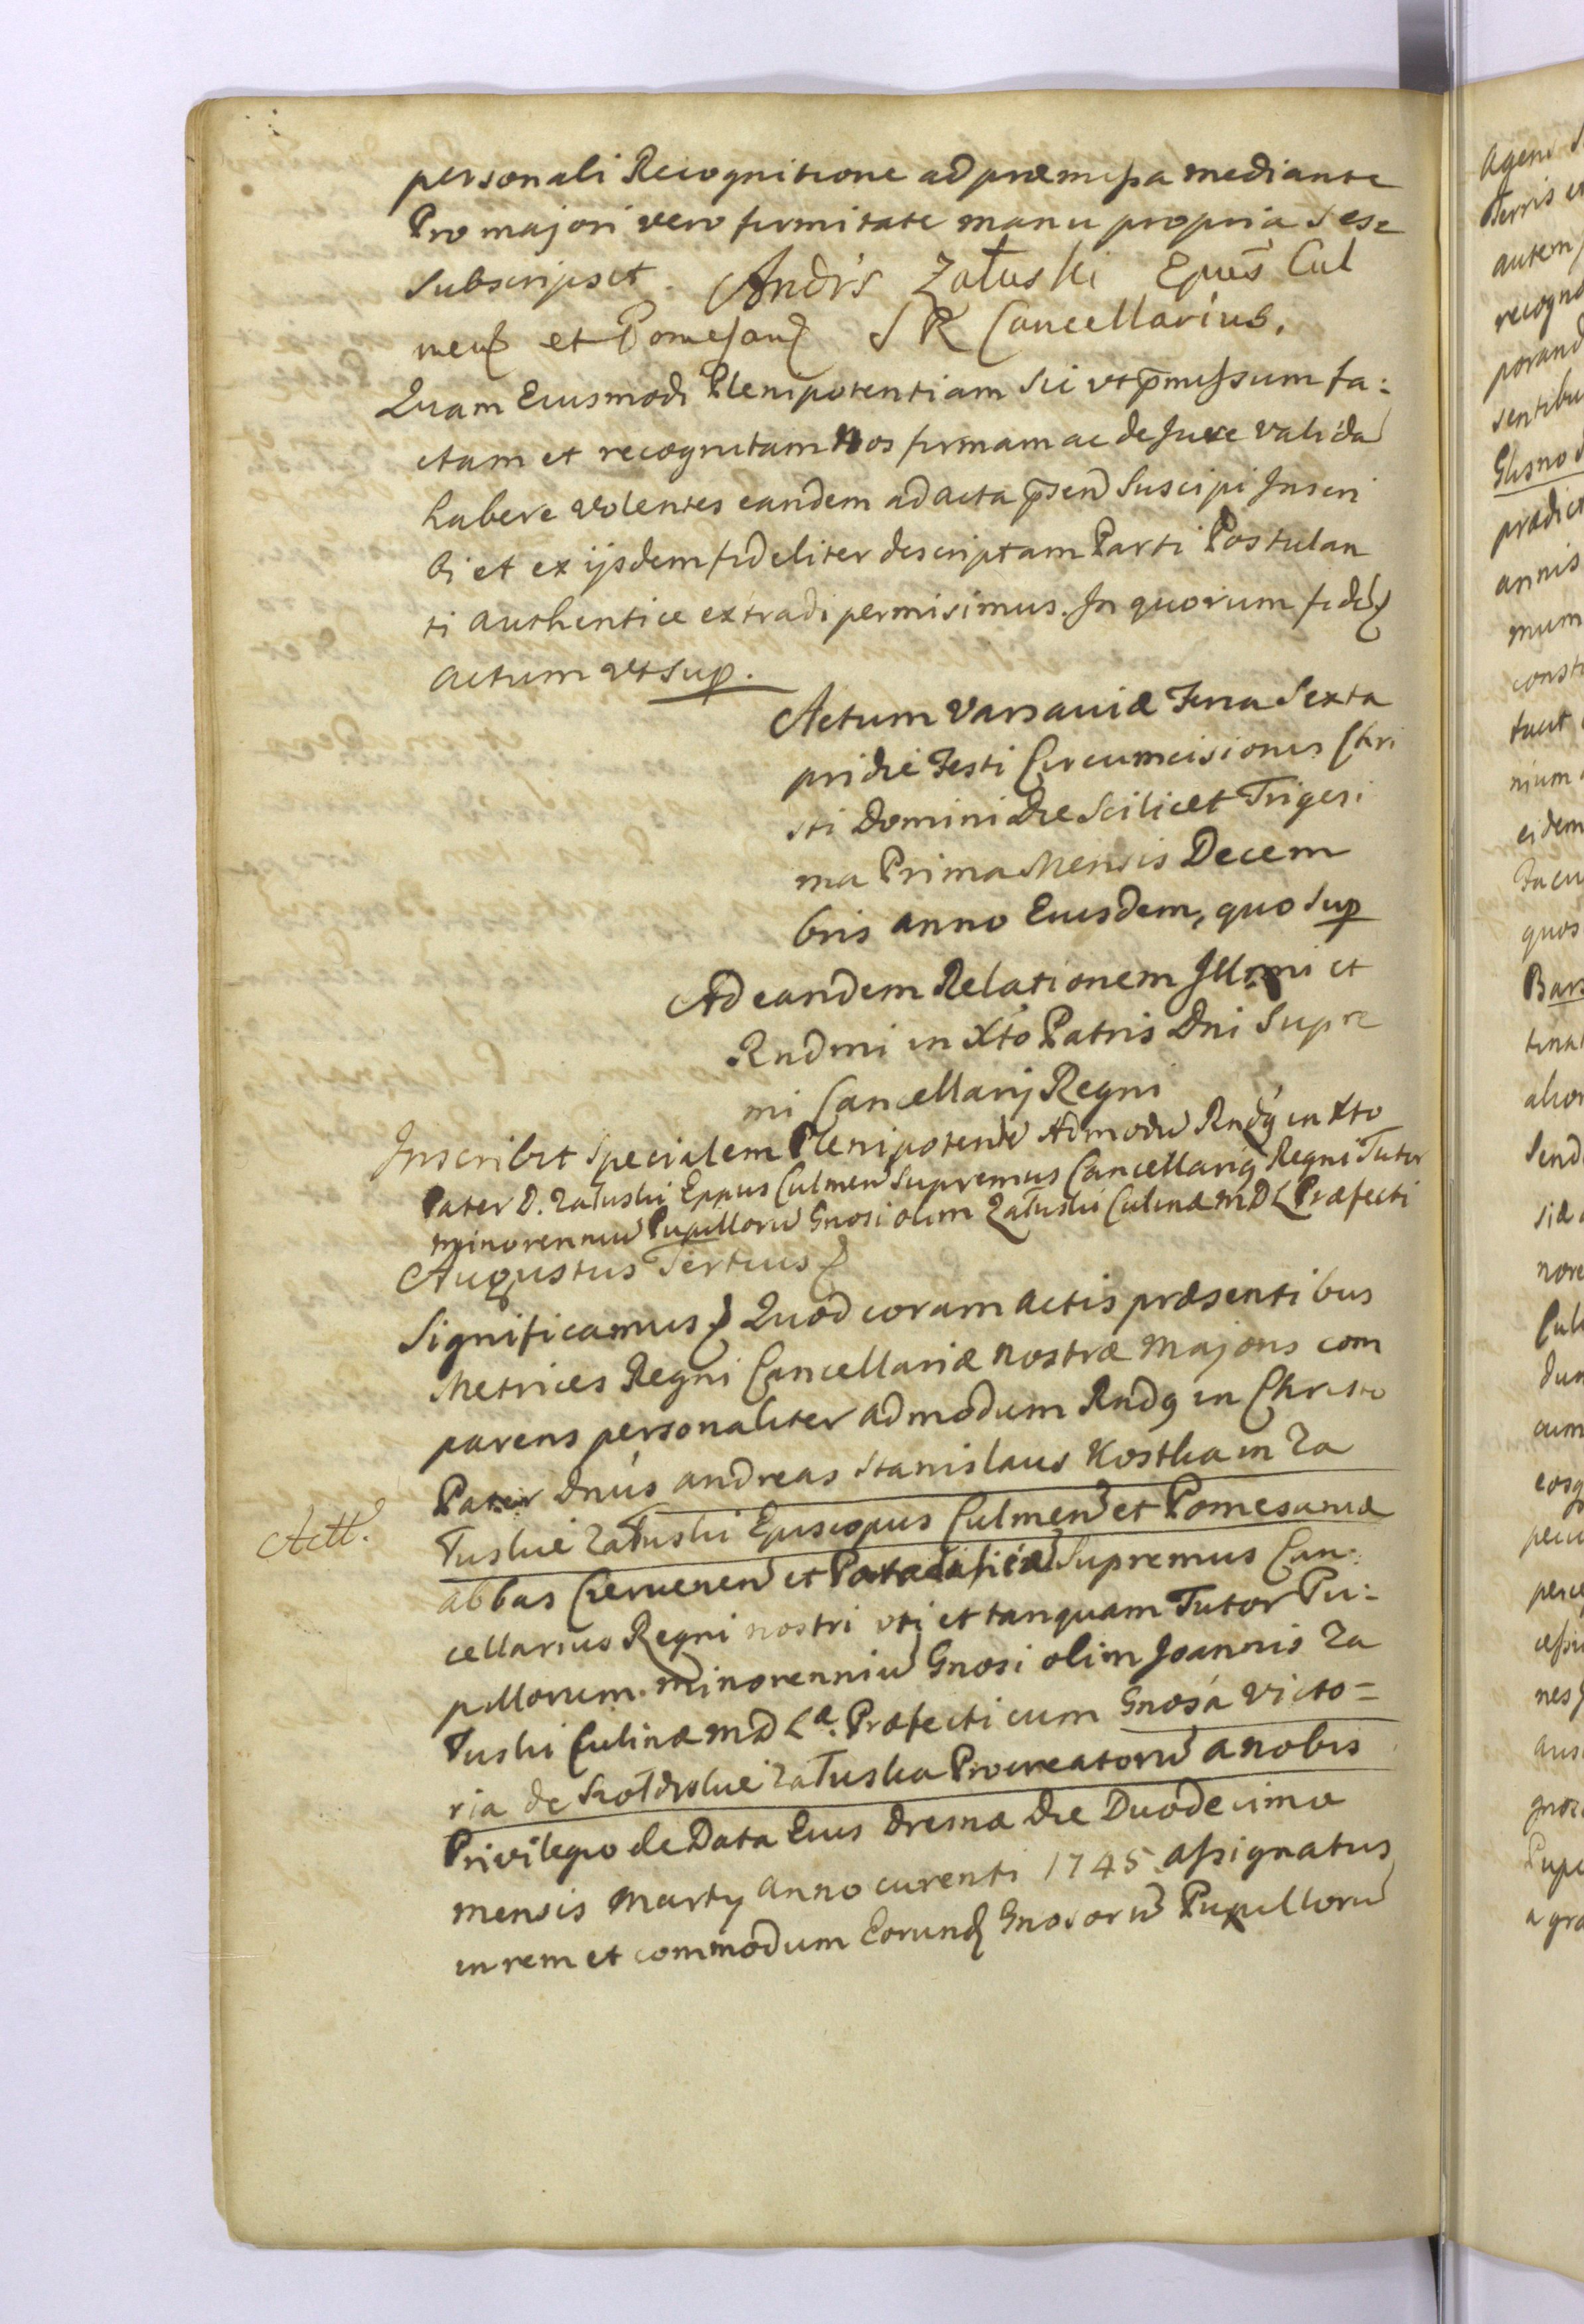 personali Recognitione ad præmissa mediante
Pro majori vero firmitate manu propria Se se
subscripsit. Andr's Załuski Epūs Cul
mens et Pomesans S R Cancellarius.
Quam Eiusmodi Plenipotentiam Sic vt p̄missum fa:
ctam et recognitam Nos firmam ac de Jure valida
habere volentes eandem ad acta p̄sen Suscipi Inscri
bi et ex ijsdem fideliter descriptam Parti Postulan
ti authentice extradi permisimus. In quorum fide
actum vt sup.
Actum Varsaviæ Feria Sexta
pridie Festi Circumcisionis Chri
sti Domini Die Scilicet Trigesi
ma Prima Mensis Decem
bris anno Eiusdem, quo Sup
Ad eandem Relationem Illmi et
Rndmi in Xto Patris Dni Supre
mi Cancellarij Regni
Inscribit Specialem Plenipotent Admodu Rndq in Xto
Pater D. Załuski Eppus Culmen Supremus Cancellariq Regni Tutor
minorenniu Pupilloru Gnosi olim Załuski Culinæ M D L Præfecti
Augustus Tertius
Significamus Quod coram actis præsentibus
Metrices Regni Cancellariæ nostræ Majoris com
parens personaliter admodum Rndq in Christo
Pater Dnus andreas Stanislaus Kostka in Za
łuskie Załuski Episcopus Culmen et Pomesaniæ
abbas Czerwenen et Supremus Can:
cellarius Regni nostri uti et tanquam Tutor Pu:
pillorum minorenniu Gnosi olim Joannis Za
łuski Culinæ M D Læ. Præfecti cum Gnosa Victo=
ria de Szołdrskie Załuska Procreatoru a nobis
Privilegio de Data Eius Dresnæ Die Duodecima
mensis Martij anno curenti 1745 assignatus
in rem et commodum Eorund Gnosoru Pupilloru
Actt.
agen
Terris et
autem
recogno
porand
sentibu
Gnso
prædict
annis
mum
const
tuit
nium
eidem
Facu
quos
Bars
tinat
alior
send
siæ
nore
Cul
dum
cum
eosq
pecu
perce
cessi
nes
aus
gnos
Pupi
a gra